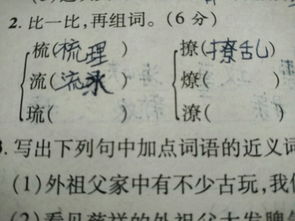 2. 比一比,再组词。(6分)
梳(梳理) 撩(撩乱)
流(流水) (
琉( 燎(
. 写出下列句中加点词语的近义词
(1)外祖父家中有不少古玩,我
(2)看见慈祥的外祖父大发脾